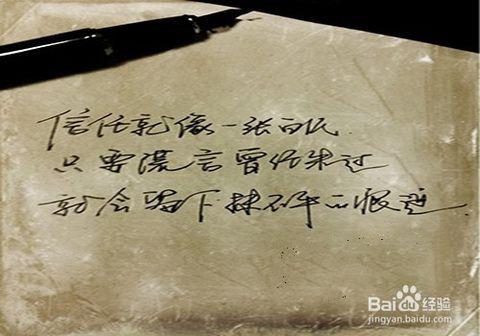 信任就像一张白纸
只要谎言曾经来过
就会留下抹不平的痕迹
Baidu经验
jingyan.baidu.com